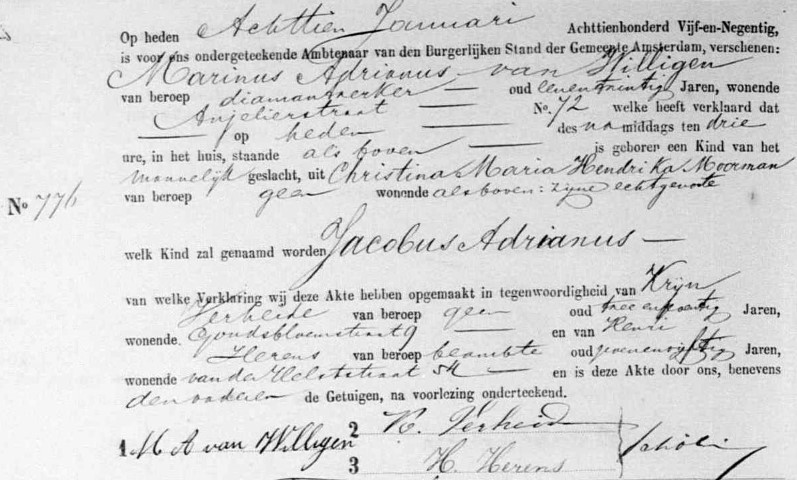 Op heden Achttien Januari Achttienhonderd Vijf-en-Negentig,
is voor ons ondergeteekende Ambtenaar van den Burgerlijken Stand der Gemeente Amsterdam, verschenen:
Marinus Adrianus van Willigen
van beroep diamantwerker — oud Jaren, wonende
Anjelierstraat — No. 72 welke heeft verklaard dat
— op heden — des na middags ten drie
ure, in het huis, staande als boven — is geboren een Kind van het
mannelijk geslacht, uit Christina Maria Hendrika Moorman
No 776
van beroep geen wonende als boven: zijne echtgenoote
welk Kind zal genaamd worden Jacobus Adrianus —
van welke Verklaring wij deze Akte hebben opgemaakt in tegenwoordigheid van Krijn
Verheide van beroep geen oud Jaren,
wonende Goudsbloemstraat 9 — en van Henri
Herens van beroep beambte oud Jaren,
wonende van der Helststraat 54 — en is deze Akte door ons, benevens
den vader en de Getuigen, na voorlezing onderteekend.
1 M A van Willigen
2 K. Verheid
3 H. Herens